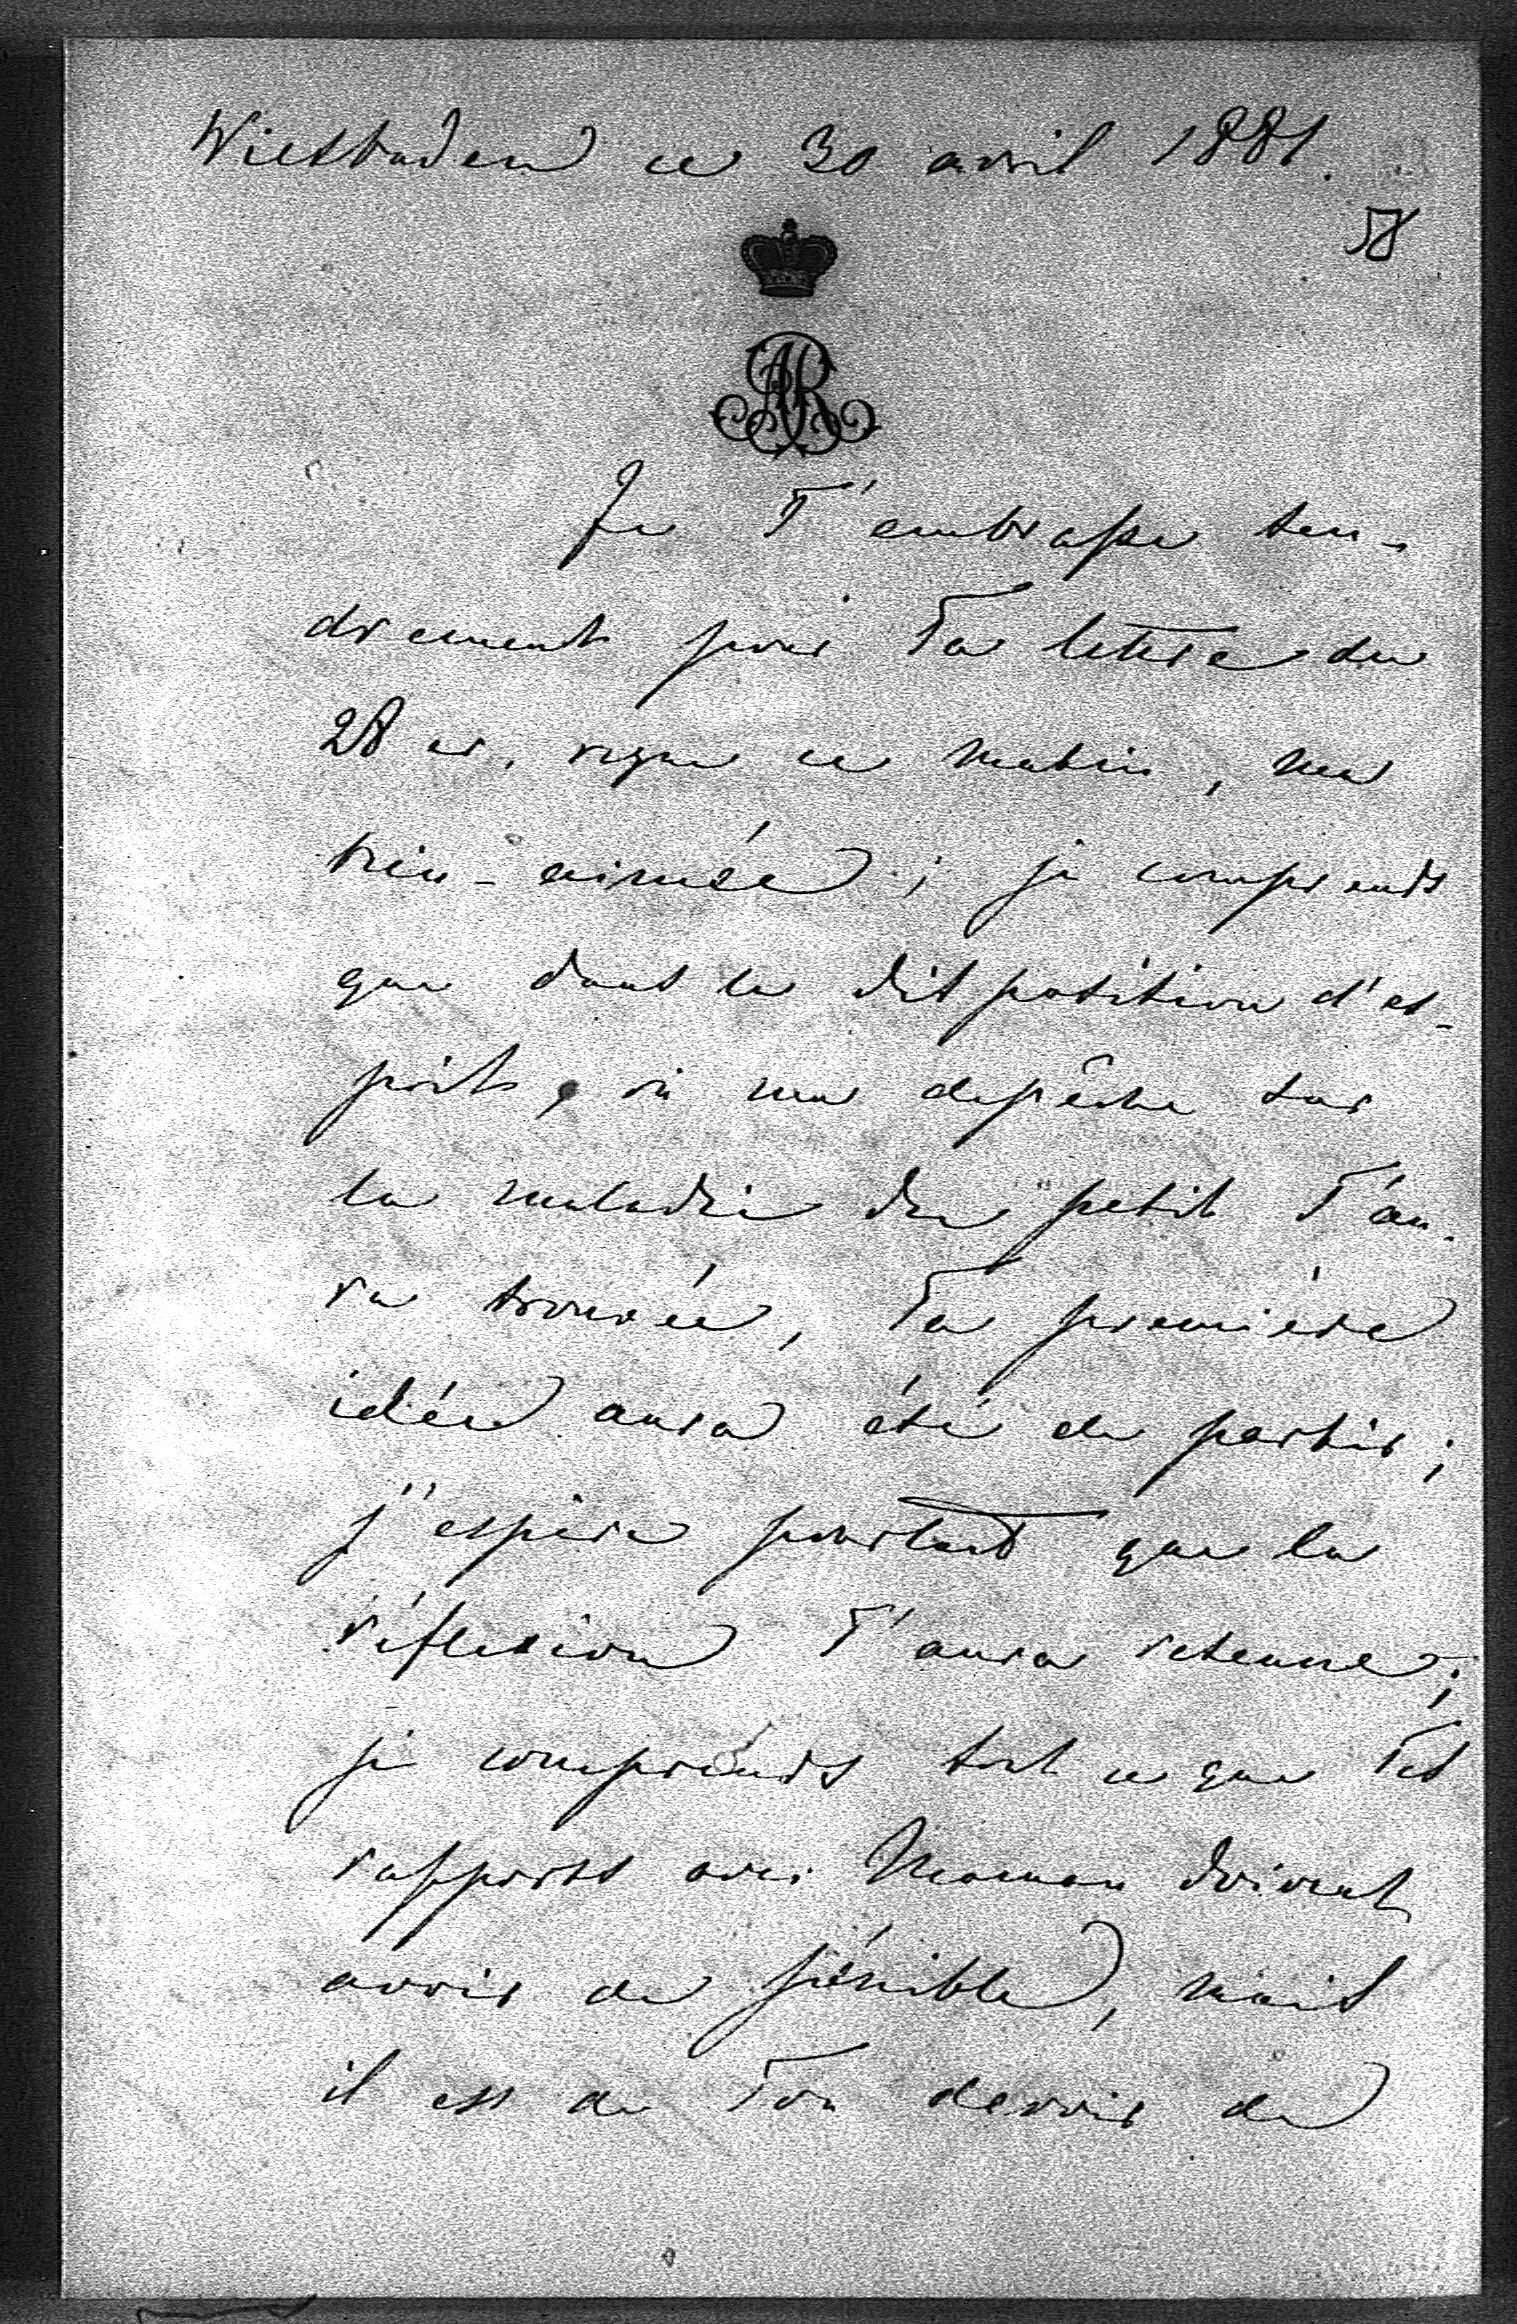 Wiesbaden ce 30 avril 1881.
58
AR
Je T'embrasse ten-
drement pour Ta lettre du
28 cr. reçue ce matin, ma
bien-aimée; je comprends
que dans la disposition d'es-
prit, où ma dépêche sur
la maladie du petit T'au-
ra trouvée, Ta première
idée aura été de partir;
j'espère pourtant que la
réflexion T'aura retenue;
je comprends tout ce que Tes
rapports avec Maman doivent
avoir de pénible, mais
il est de Ton devoir de